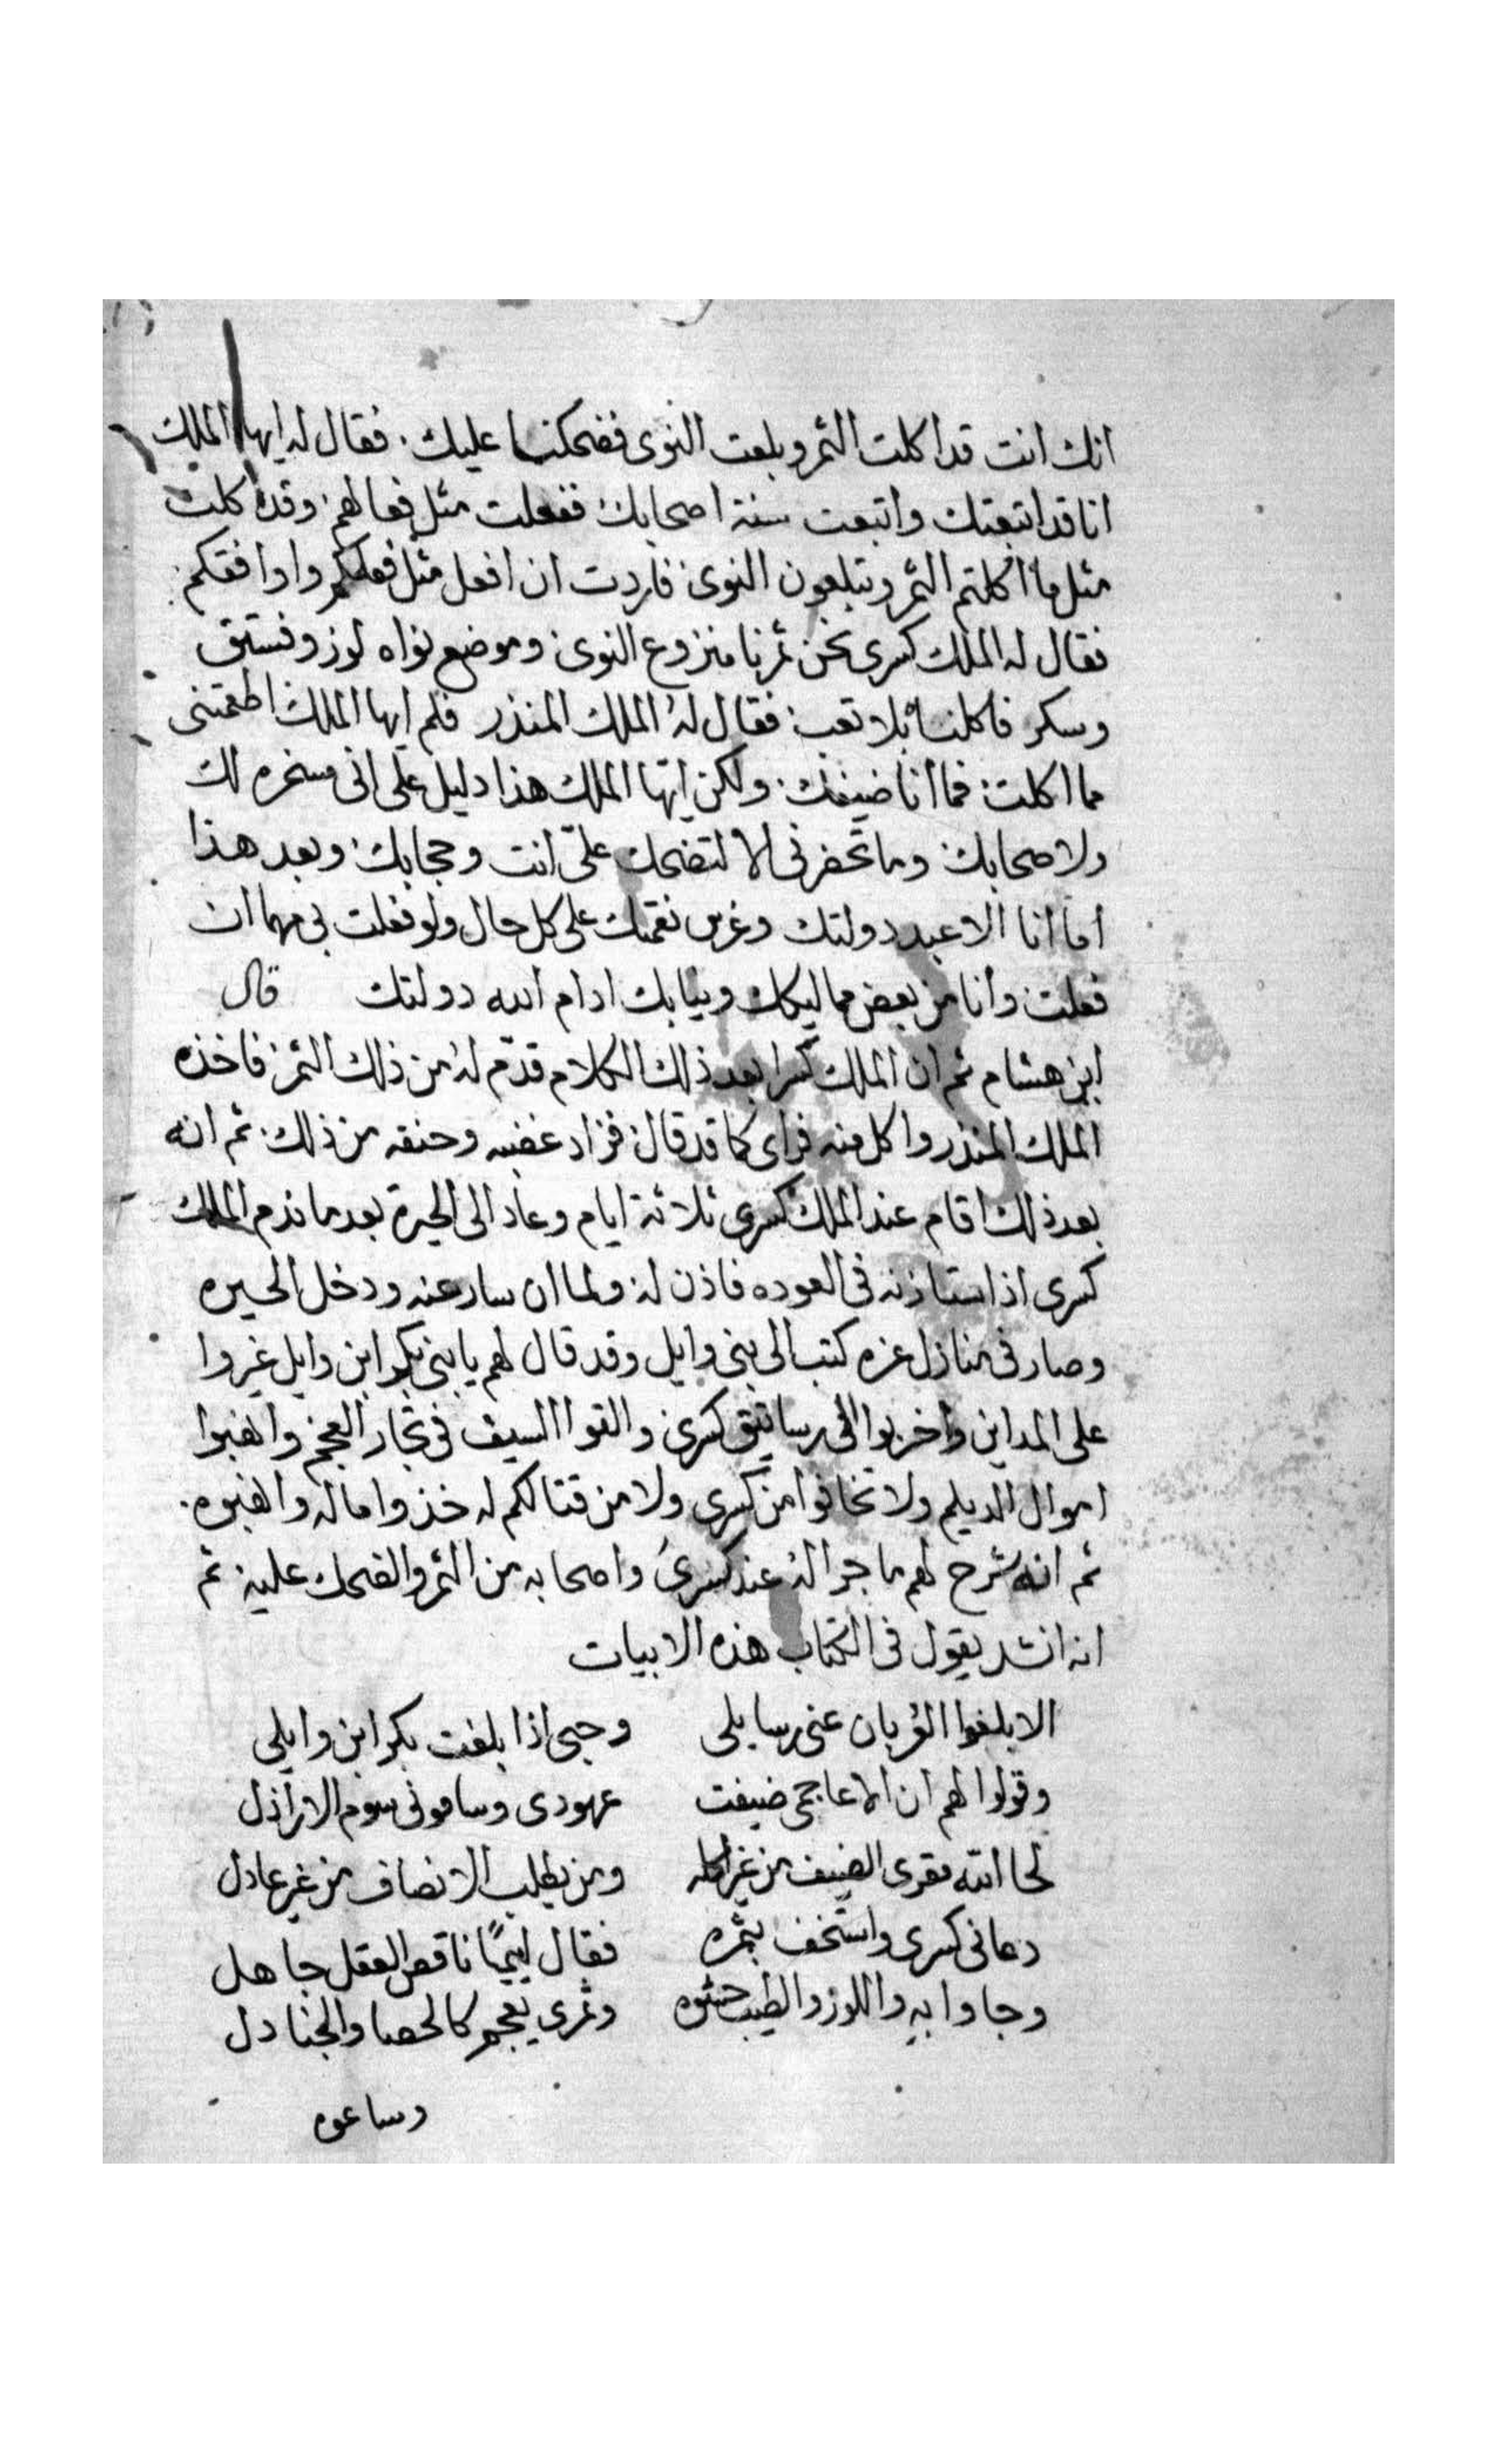 انك انت قد اكلت التمر وبلعت النوى فضحكنا عليك. فقال له ايها الملك
انا قد اتبعتك واتبعت سنة اصحابك ففعلت مثل فعالهم وقد اكلت
مثل ما اكلتم التمر وتبلعون النوى فاردت ان افعل مثل فعلكم واوافقكم.
فقال له الملك كسرى نحن تمرنا منزوع النوى وموضع نواه لوز وفستق
وسكر فاكلنا بلا تعب فقال له الملك المنذر فلم ايها الملك اطعمتنى
مما اكلت فما انا ضيفك ولكن ايها الملك هذا دليل على انى مسخره لك
ولاصحابك وما تحضرنى الا لتضحك علىّ انت وحجابك وبعد هذا
اما انا الا عبد دولتك وغرس نعمتك على كل حال ولو فعلت بى مهما ان
فعلت وانا من بعض مماليكك ونيابك ادام الله دولتك قال
ابن هشام ثم ان الملك كسرا بعد ذلك الكلام قدّم له من ذلك التمر فاخذه
الملك المنذر واكل منه فراى كما قد قال فزاد غضبه وحنقه من ذلك ثم انه
بعد ذلك اقام عند الملك كسرى ثلاثة ايام وعاد الى الحيرة بعد ما ندم الملك
كسرى اذا ستاذنه فى العوده فاذن له ولما ان سار عنه ودخل الحيره
وصار فى منازل عزه كتب الى بنى وايل وقد قال لهم يا بنى بكر ابن وايل غيروا
على المداين واخربوا الى رساتيق كسرى والقوا السيف فى تجار العجم وانهبوا
اموال الديلم ولا تخافوا من كسرى ولا من قتالكم له خذوا ماله وانهبوه.
ثم انه شرح لهم ما جرا له عند كسرى واصحابه من التمر والضحك عليه ثم
انه انشد يقول فى الكتاب هذه الابيات
الا بلغوا العربان عنى رسايلى وحيى اذا بلغت بكر ابن وايلى
وقولوا لهم ان الاعاجمى ضيعت عهودى وسامونى سوم الاراذل
لحا الله مقرى الضيف من غير اكله ومن يطلب الانصاف من غير عادل
دعانى كسرى واستخف بتمره فقال ليماً ناقص العقل جاهل
وجاوا به واللوز والطيب حشوه وتمرى بعجم كالحصا والجنادل
وساعوه